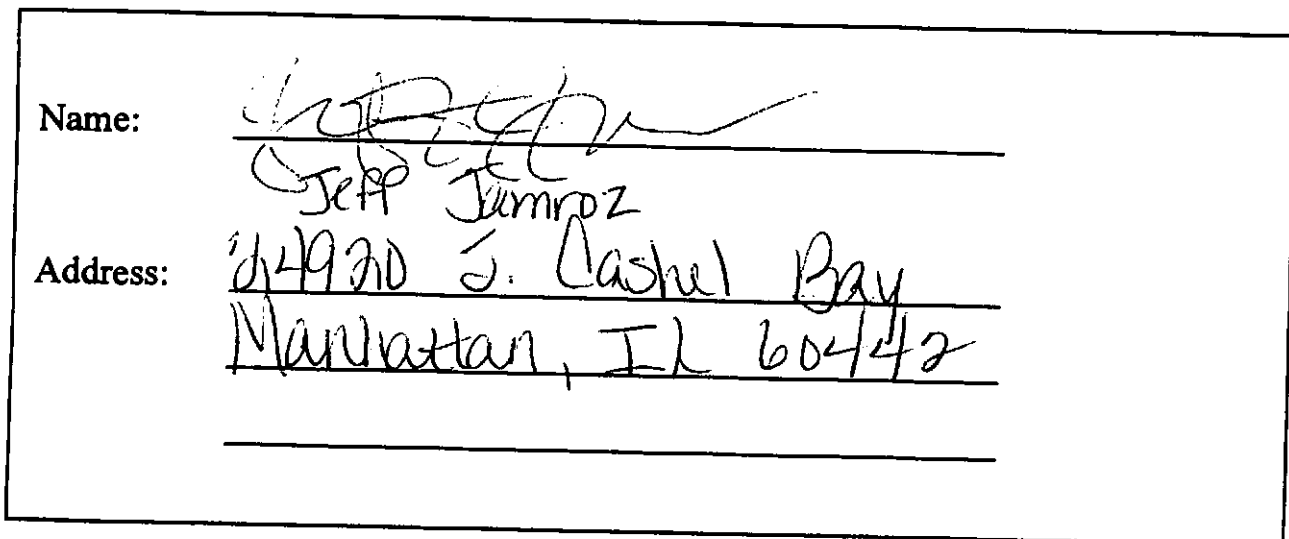 Name:
Jeff Jamroz
Address: 24920 S. Cashel Bay
Manhattan, IL 60442